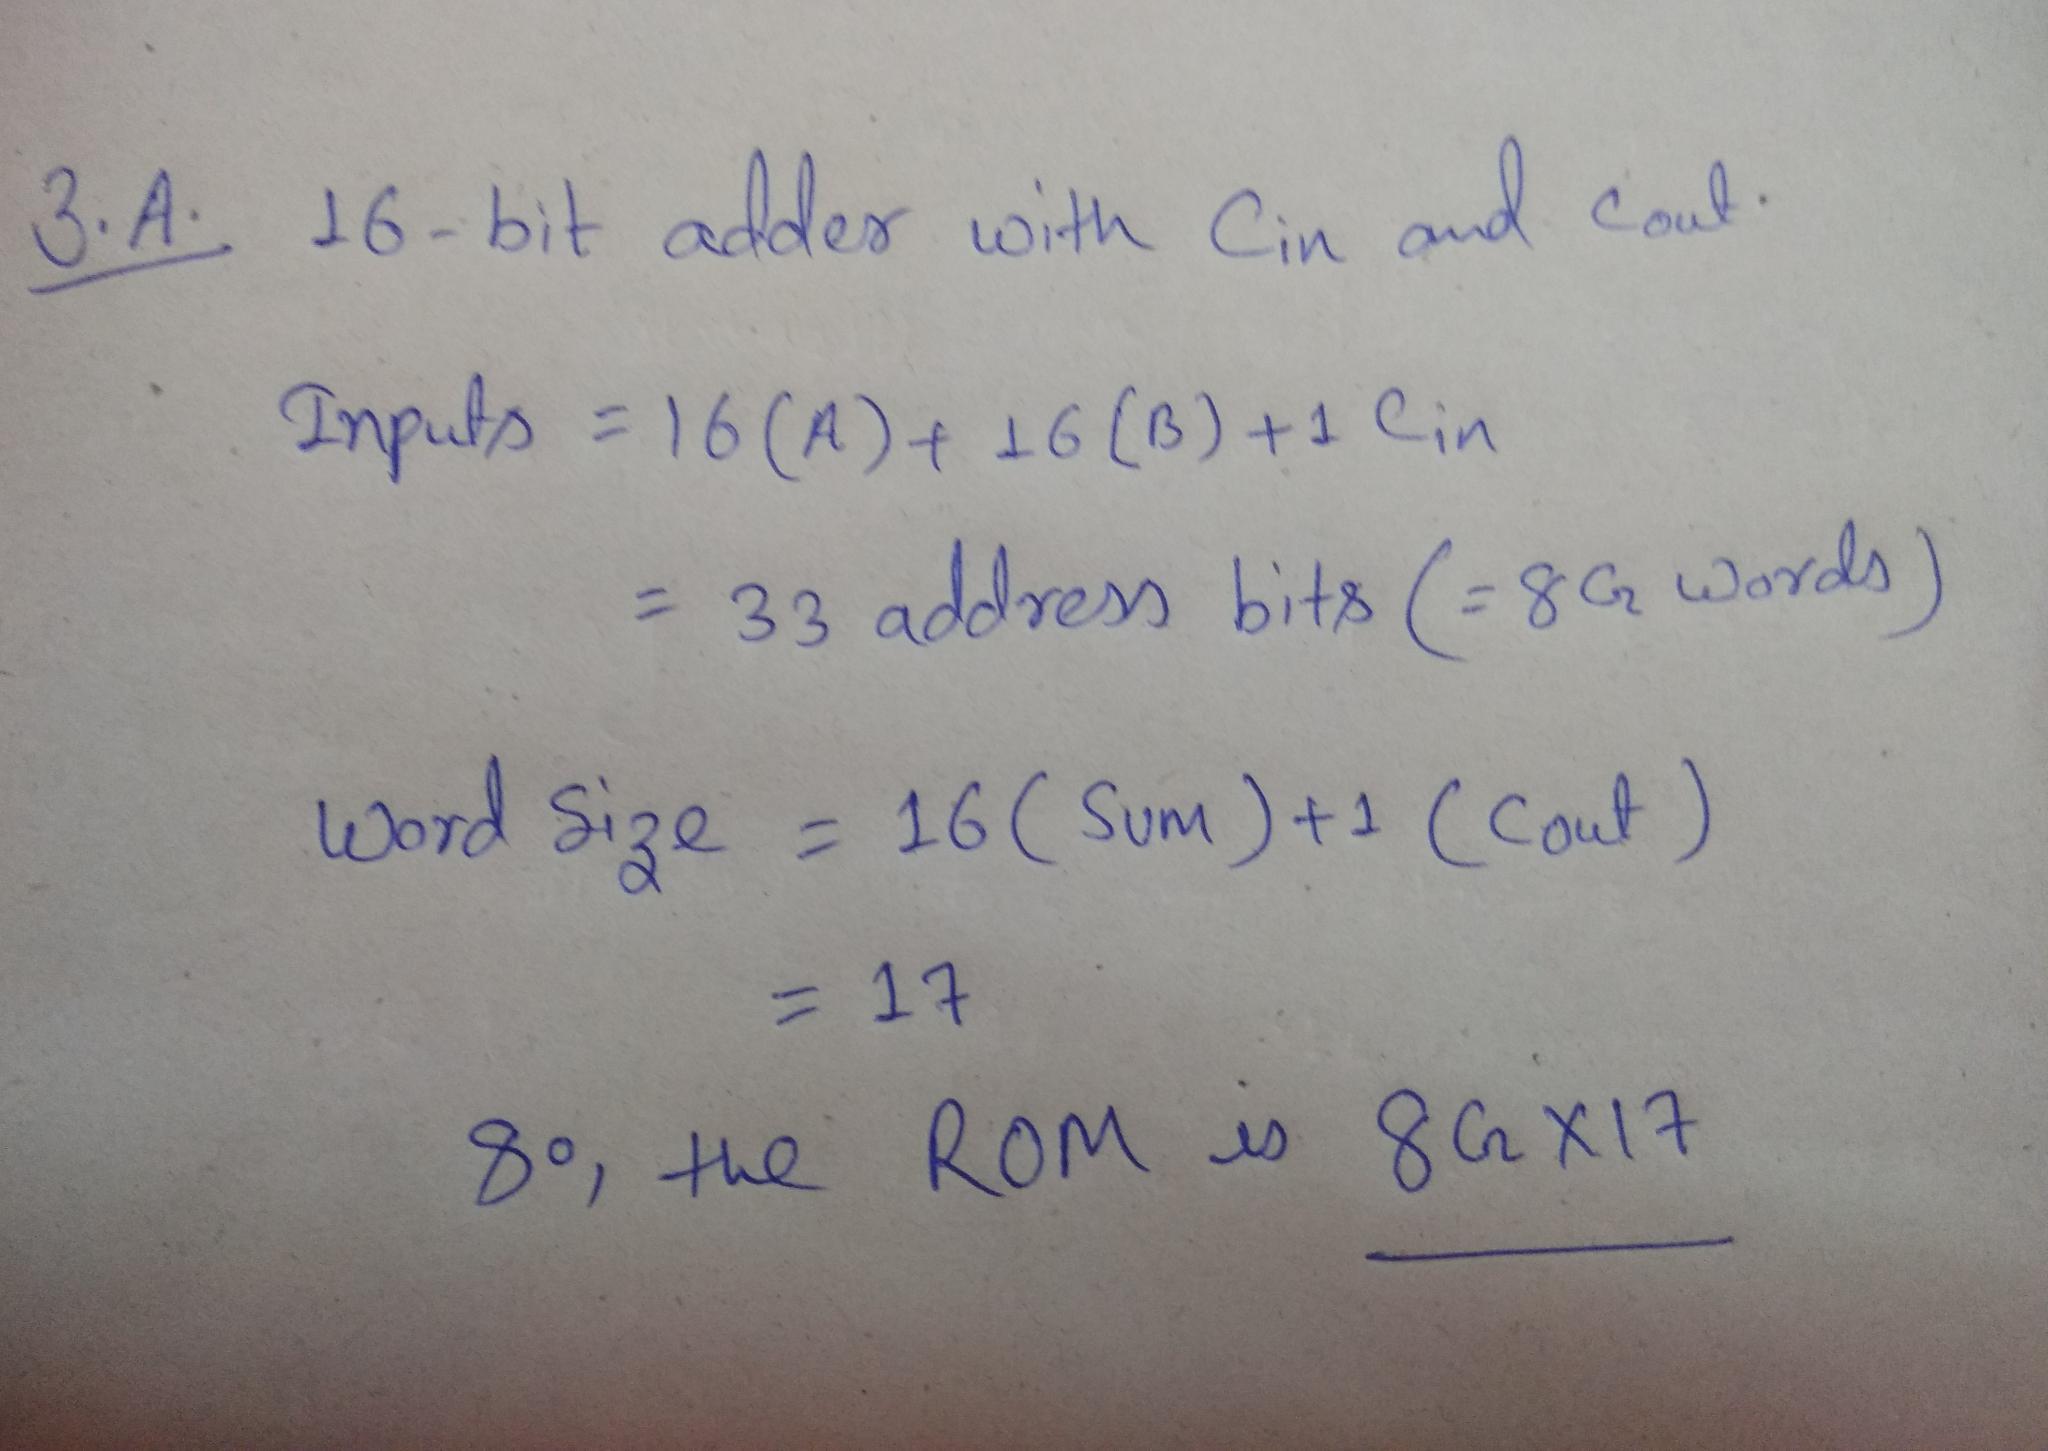 3.A. 16-bit adder with Cin and Cout.
Inputs = 16(A) + 16(B) + 1 Cin
= 33 address bits (= 8G words)
Word Size = 16(Sum) + 1 (Cout)
= 17
So, the ROM is 8G X 17